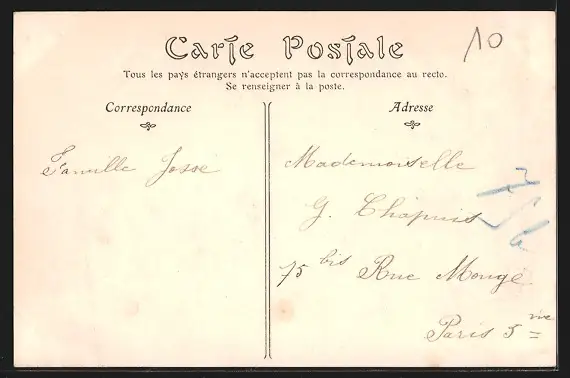 Carte Postale
10
Tous les pays étrangers n'acceptent pas la correspondance au recto.
Se renseigner à la poste.
Correspondance
Famille Josse
Adresse
Mademoiselle
G. Chapuis
75 bis Rue Monge
Paris 5me